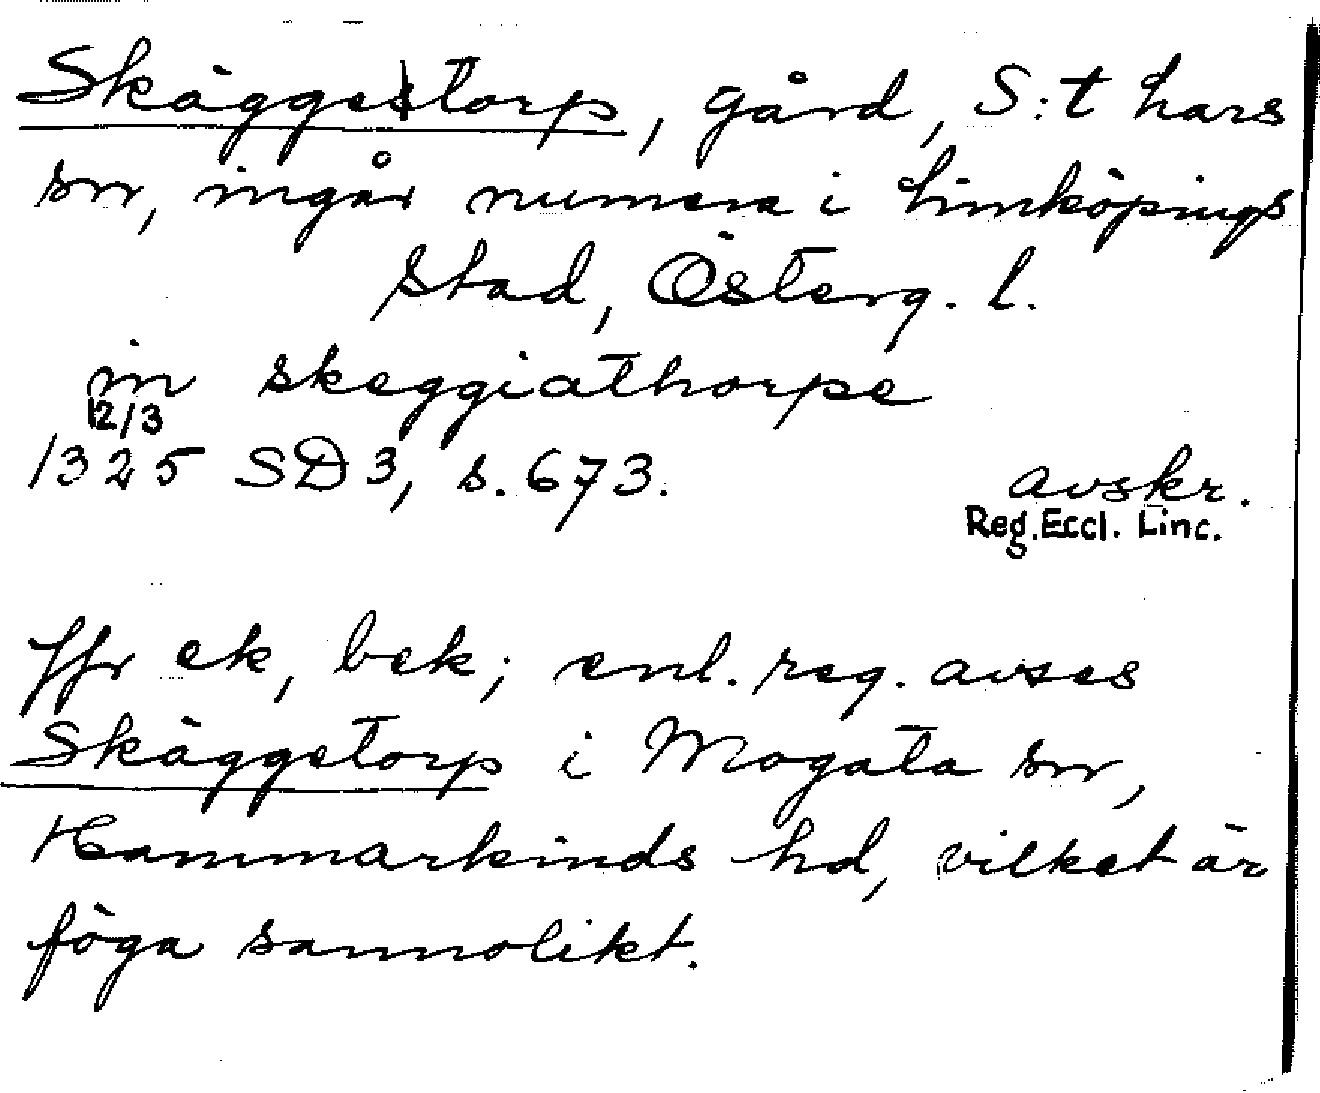 Skäggetorp, gård, S:t Lars
sn, ingår numera i Linköpings
stad, Österg. l.
in skeggiathorpe
12/3
1325 SD 3, s. 673. avskr.
Reg. Eccl. Linc.
Jfr ek, bek; enl. reg. avses
Skäggetorp i Mogata sn,
Hammarkinds hd, vilket är
föga sannolikt.